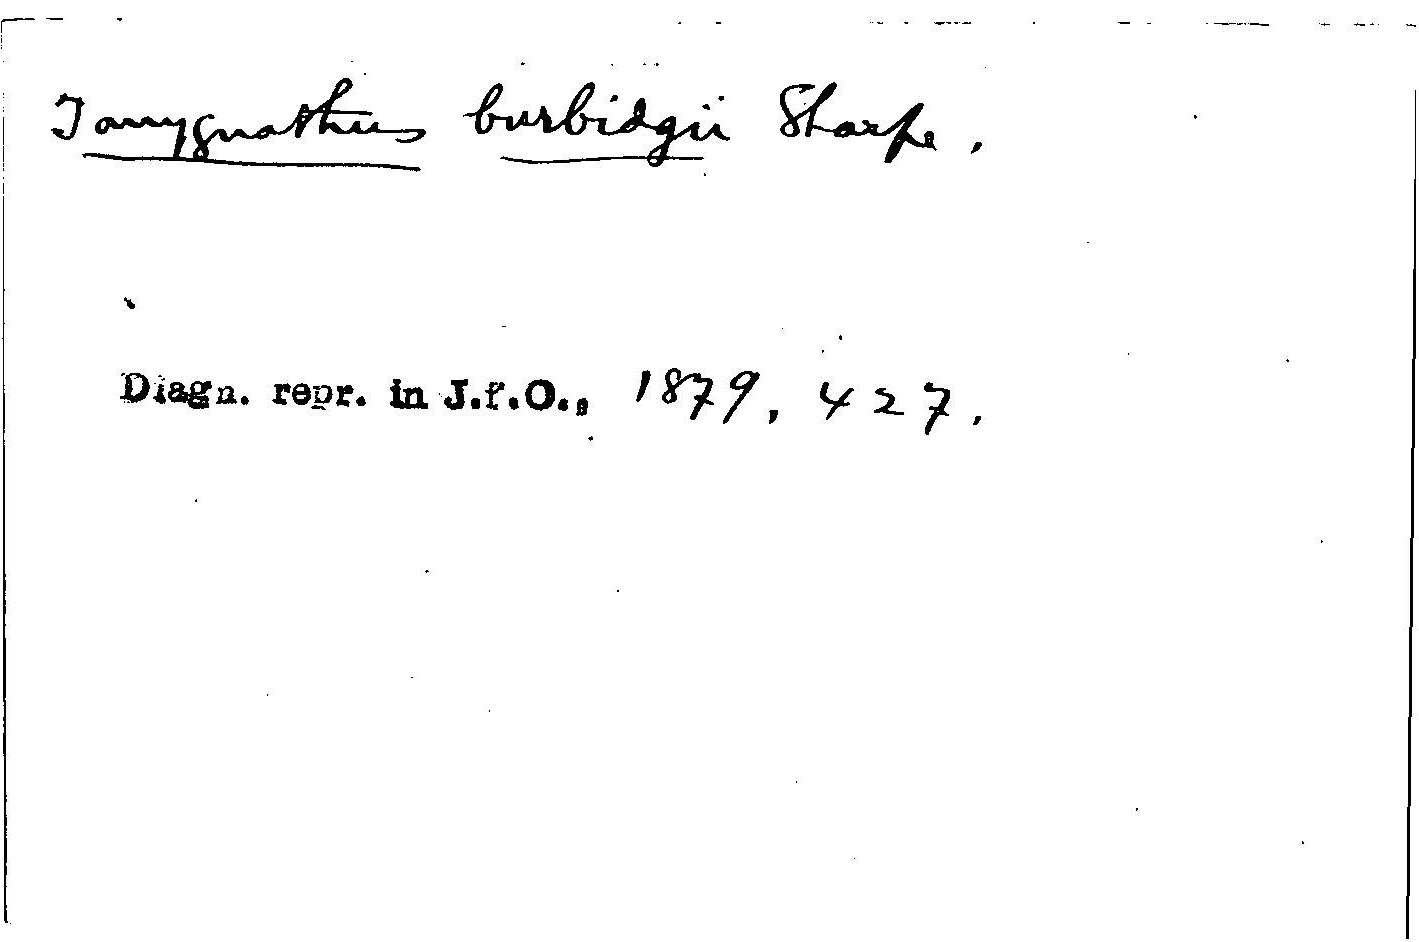 Tanygnathus burbidgii Sharpe.
Diagn. repr. in J.f.O., 1879, 427.